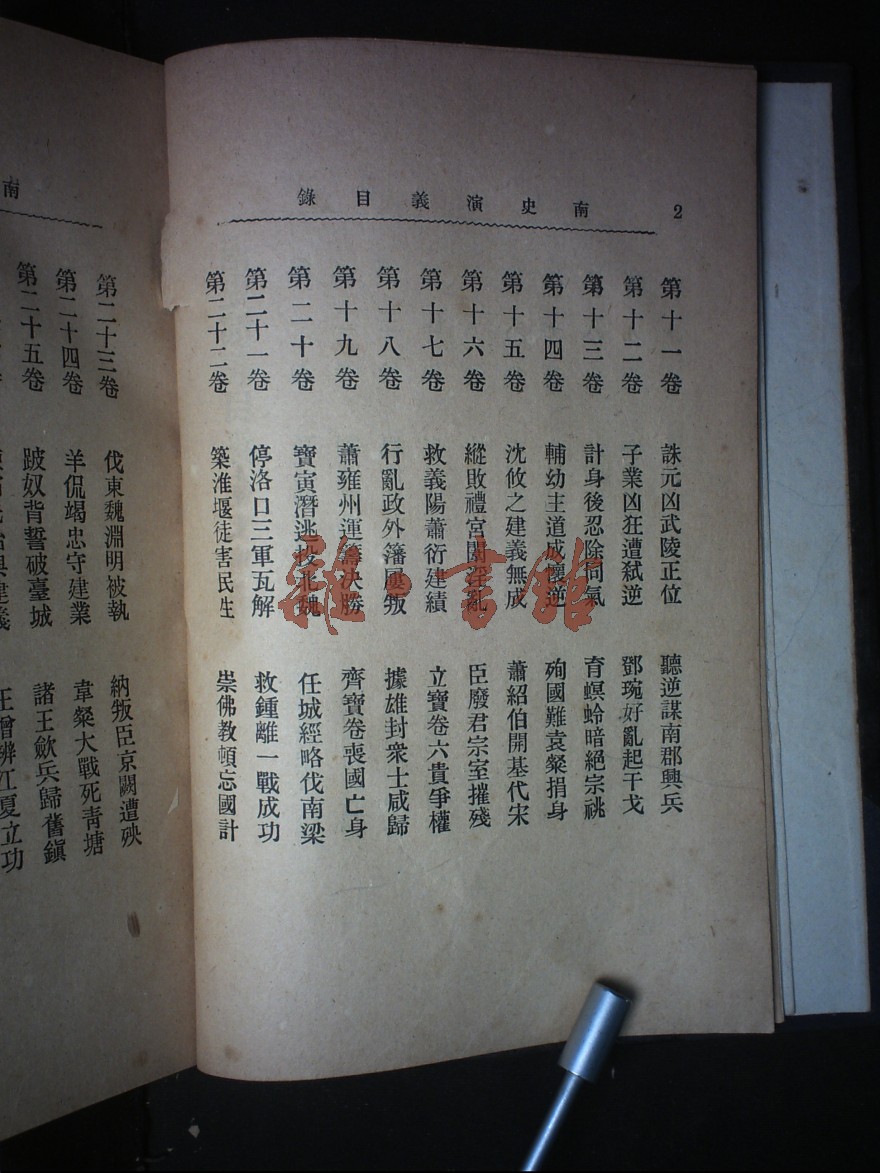 南史演義目錄 2
第十一卷 誅元凶武陵正位 聽逆謀南郡興兵
第十二卷 子業凶狂遭弒逆 鄧琬好亂起干戈
第十三卷 計身後忍除同氣 育螟蛉暗絕宗祧
第十四卷 輔幼主道成懷逆 殉國難袁粲捐身
第十五卷 沈攸之建義無成 蕭紹伯開基代宋
第十六卷 縱敗禮宮闈淫亂 臣廢君宗室摧殘
第十七卷 救義陽蕭衍建績 立寶卷六貴爭權
第十八卷 行亂政外藩屢叛 據雄封衆士咸歸
第十九卷 蕭雍州運籌決勝 齊寶卷喪國亡身
第二十卷 寶寅潛逃投北魏 任城經略伐南梁
第二十一卷 停洛口三軍瓦解 救鍾離一戰成功
第二十二卷 築淮堰徒害民生 崇佛教頓忘國計
南
第二十三卷 伐東魏淵明被執 納叛臣京闕遭殃
第二十四卷 羊侃竭忠守建業 韋粲大戰死青塘
第二十五卷 跛奴背誓破臺城 諸王斂兵歸舊鎭
王僧辨江夏立功
雜·書館